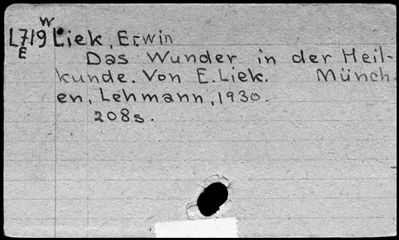 W
L719 Liek, Erwin
E
Das Wunder in der Heil-
kunde. Von E. Liek. Münch-
en, Lehmann, 1930.
208s.